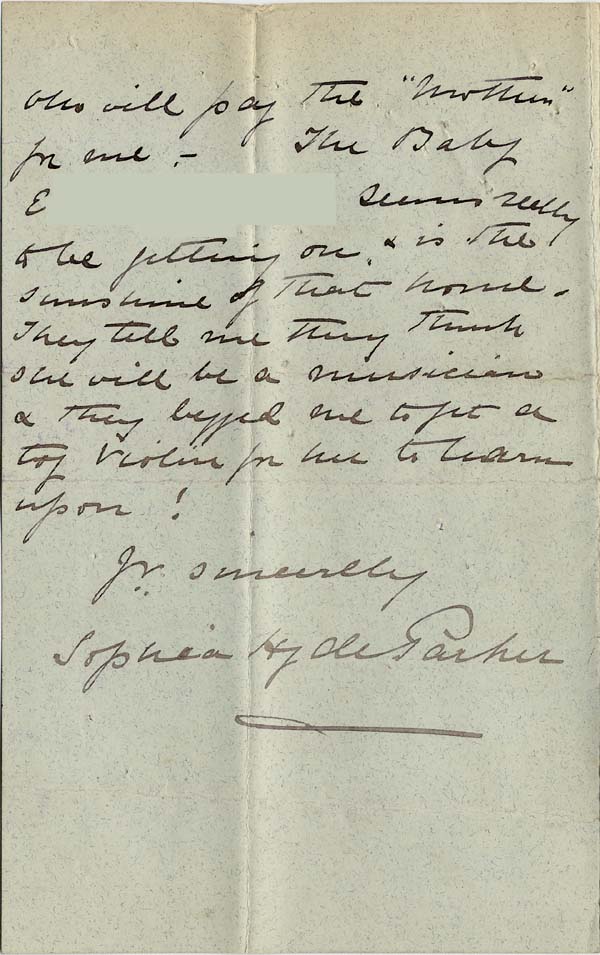 who will pay the "Mothers"
for me - The Baby
E seems really
to be getting on, & is the
sunshine of that home.
They tell me they think
she will be a musician
& they begged me to get a
toy Violin for her to learn
upon!
Yr. sincerely
Sophia Hyde Parker